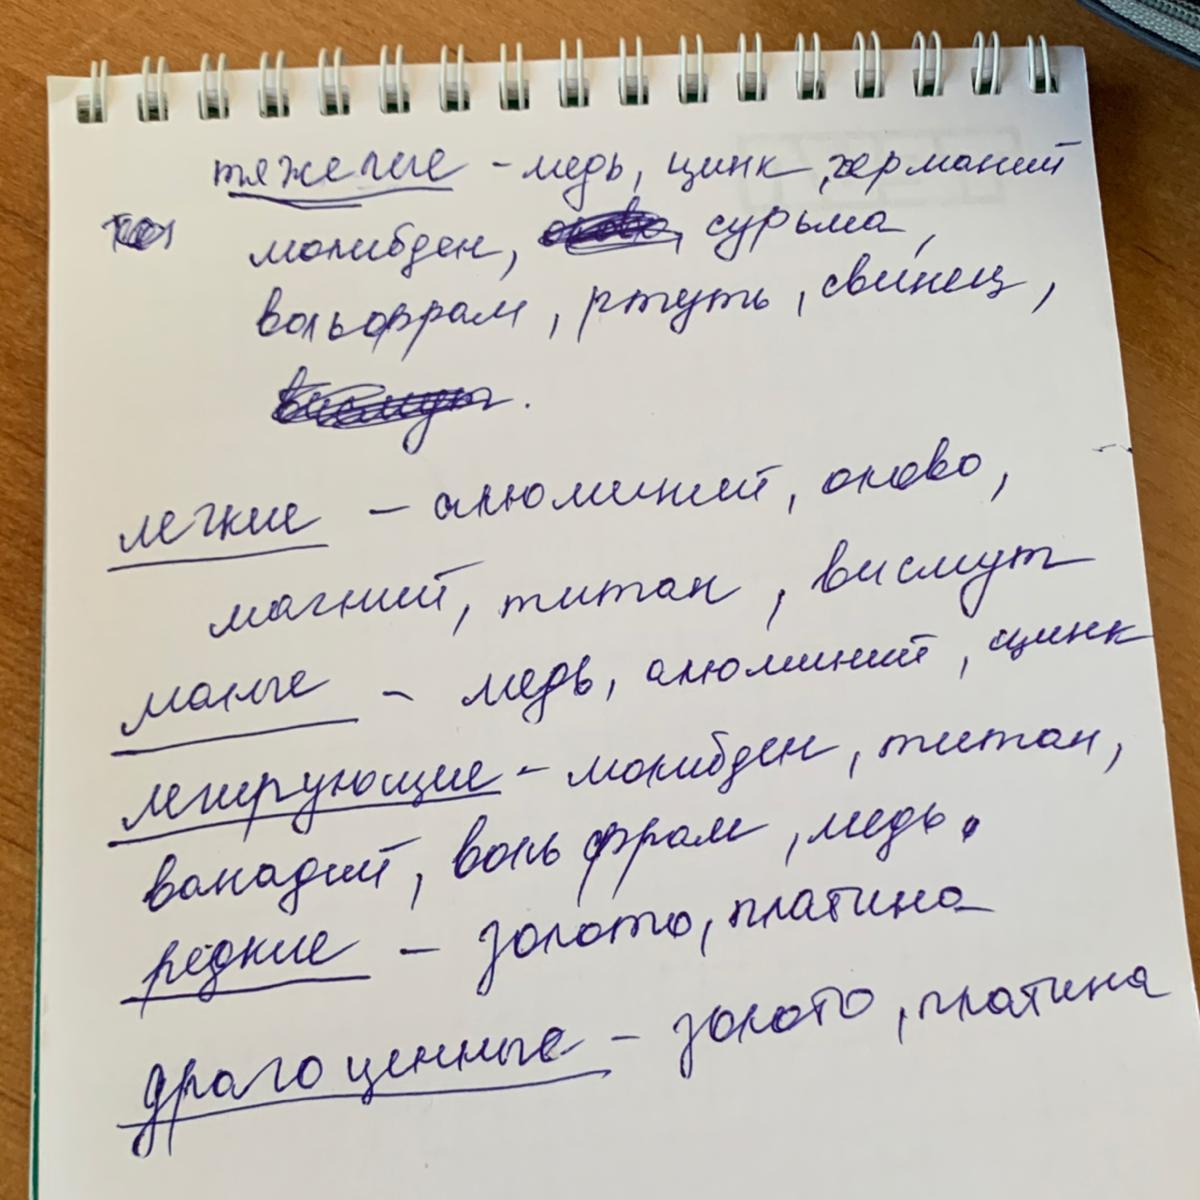 тяжелые - медь, цинк, германий
молибден, сурьма,
вольфрам, ртуть, свинец,
висмут.
легкие - алюминий, олово,
магний, титан, висмут
малые - медь, алюминий, цинк
легирующие - молибден, титан,
ванадий, вольфрам, медь.
редкие - золото, платина
драгоценные - золото, платина